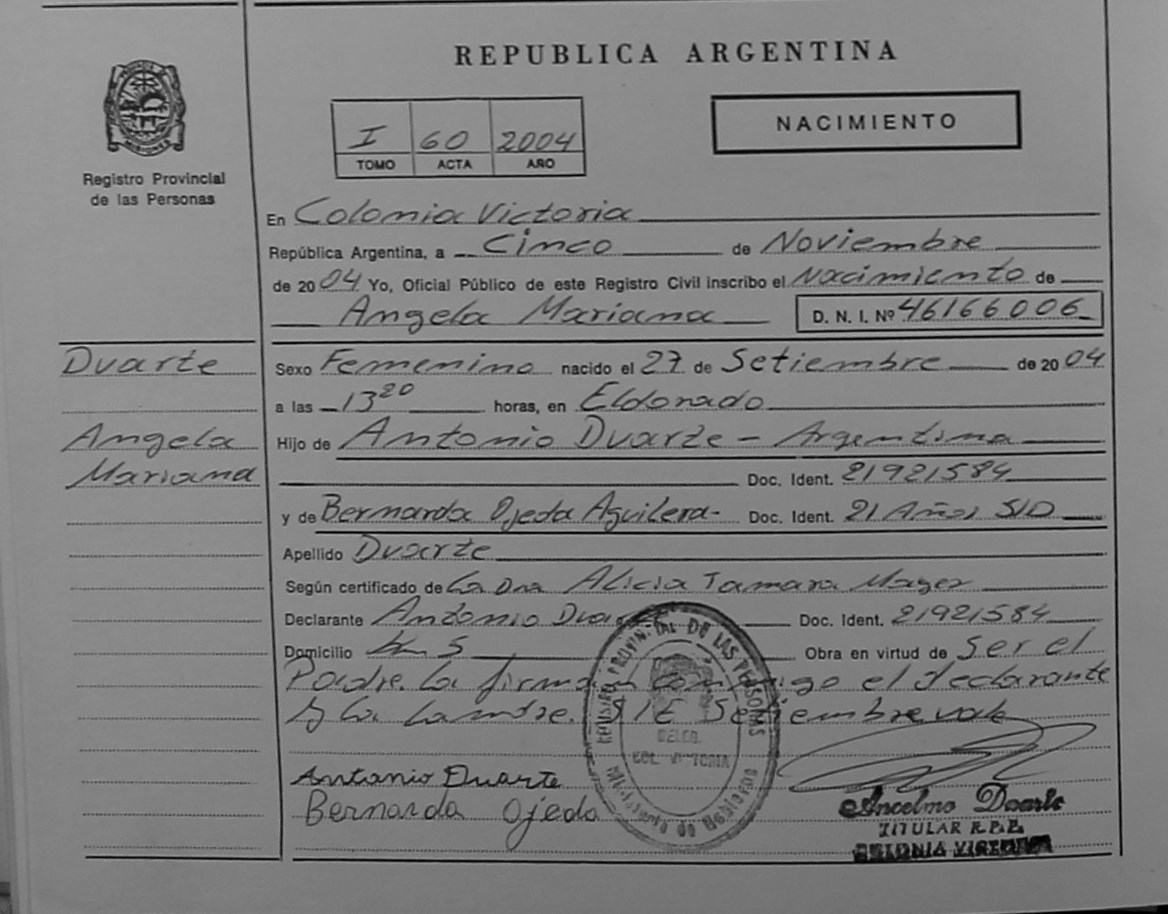 REPUBLICA ARGENTINA
PROVINCIA DE MISIONES
Registro Provincial
de las Personas
I 60 2004
TOMO ACTA AÑO
NACIMIENTO
En Colonia Victoria
República Argentina, a Cinco de Noviembre
de 2004 Yo, Oficial Público de este Registro Civil inscribo el Nacimiento de
Angela Mariana D. N. I. Nº 46166006
Duarte
Angela
Mariana
Sexo Femenino nacido el 27 de Setiembre de 2004
a las 13 20 horas, en Eldorado
Hijo de Antonio Duarte - Argentina
Doc. Ident. 21921584
y de Bernarda Ojeda Aguilera- Doc. Ident. 21 Años S/D
Apellido Duarte
Según certificado de La Dra Alicia Tamara Mayer
Declarante Antonio Duarte Doc. Ident. 21921584
Domicilio Km 5 Obra en virtud de ser el
Padre. La firman conmigo el declarante
y la madre. S/E Setiembre vale
Antonio Duarte
Bernarda Ojeda
REGISTRO PROVINCIAL DE LAS PERSONAS
DELEG.
COL. VICTORIA
Ministerio de Gobierno
Ancelmo Duarte
TITULAR R.P.P.
COLONIA VICTORIA